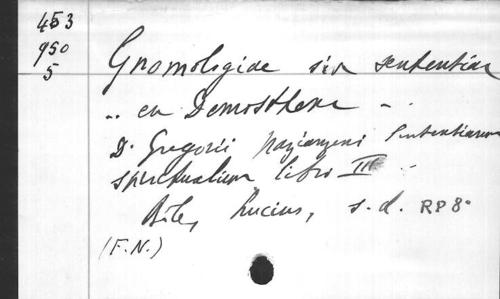 453
950
5
Gnomologiae siu sententiae
.. ex Demosthene ..
D. Gregorii Nazianzeni Sententiarum
spiritualium libri III ..
Bâle, Lucius, s.d. RP 8°
(F.N.)